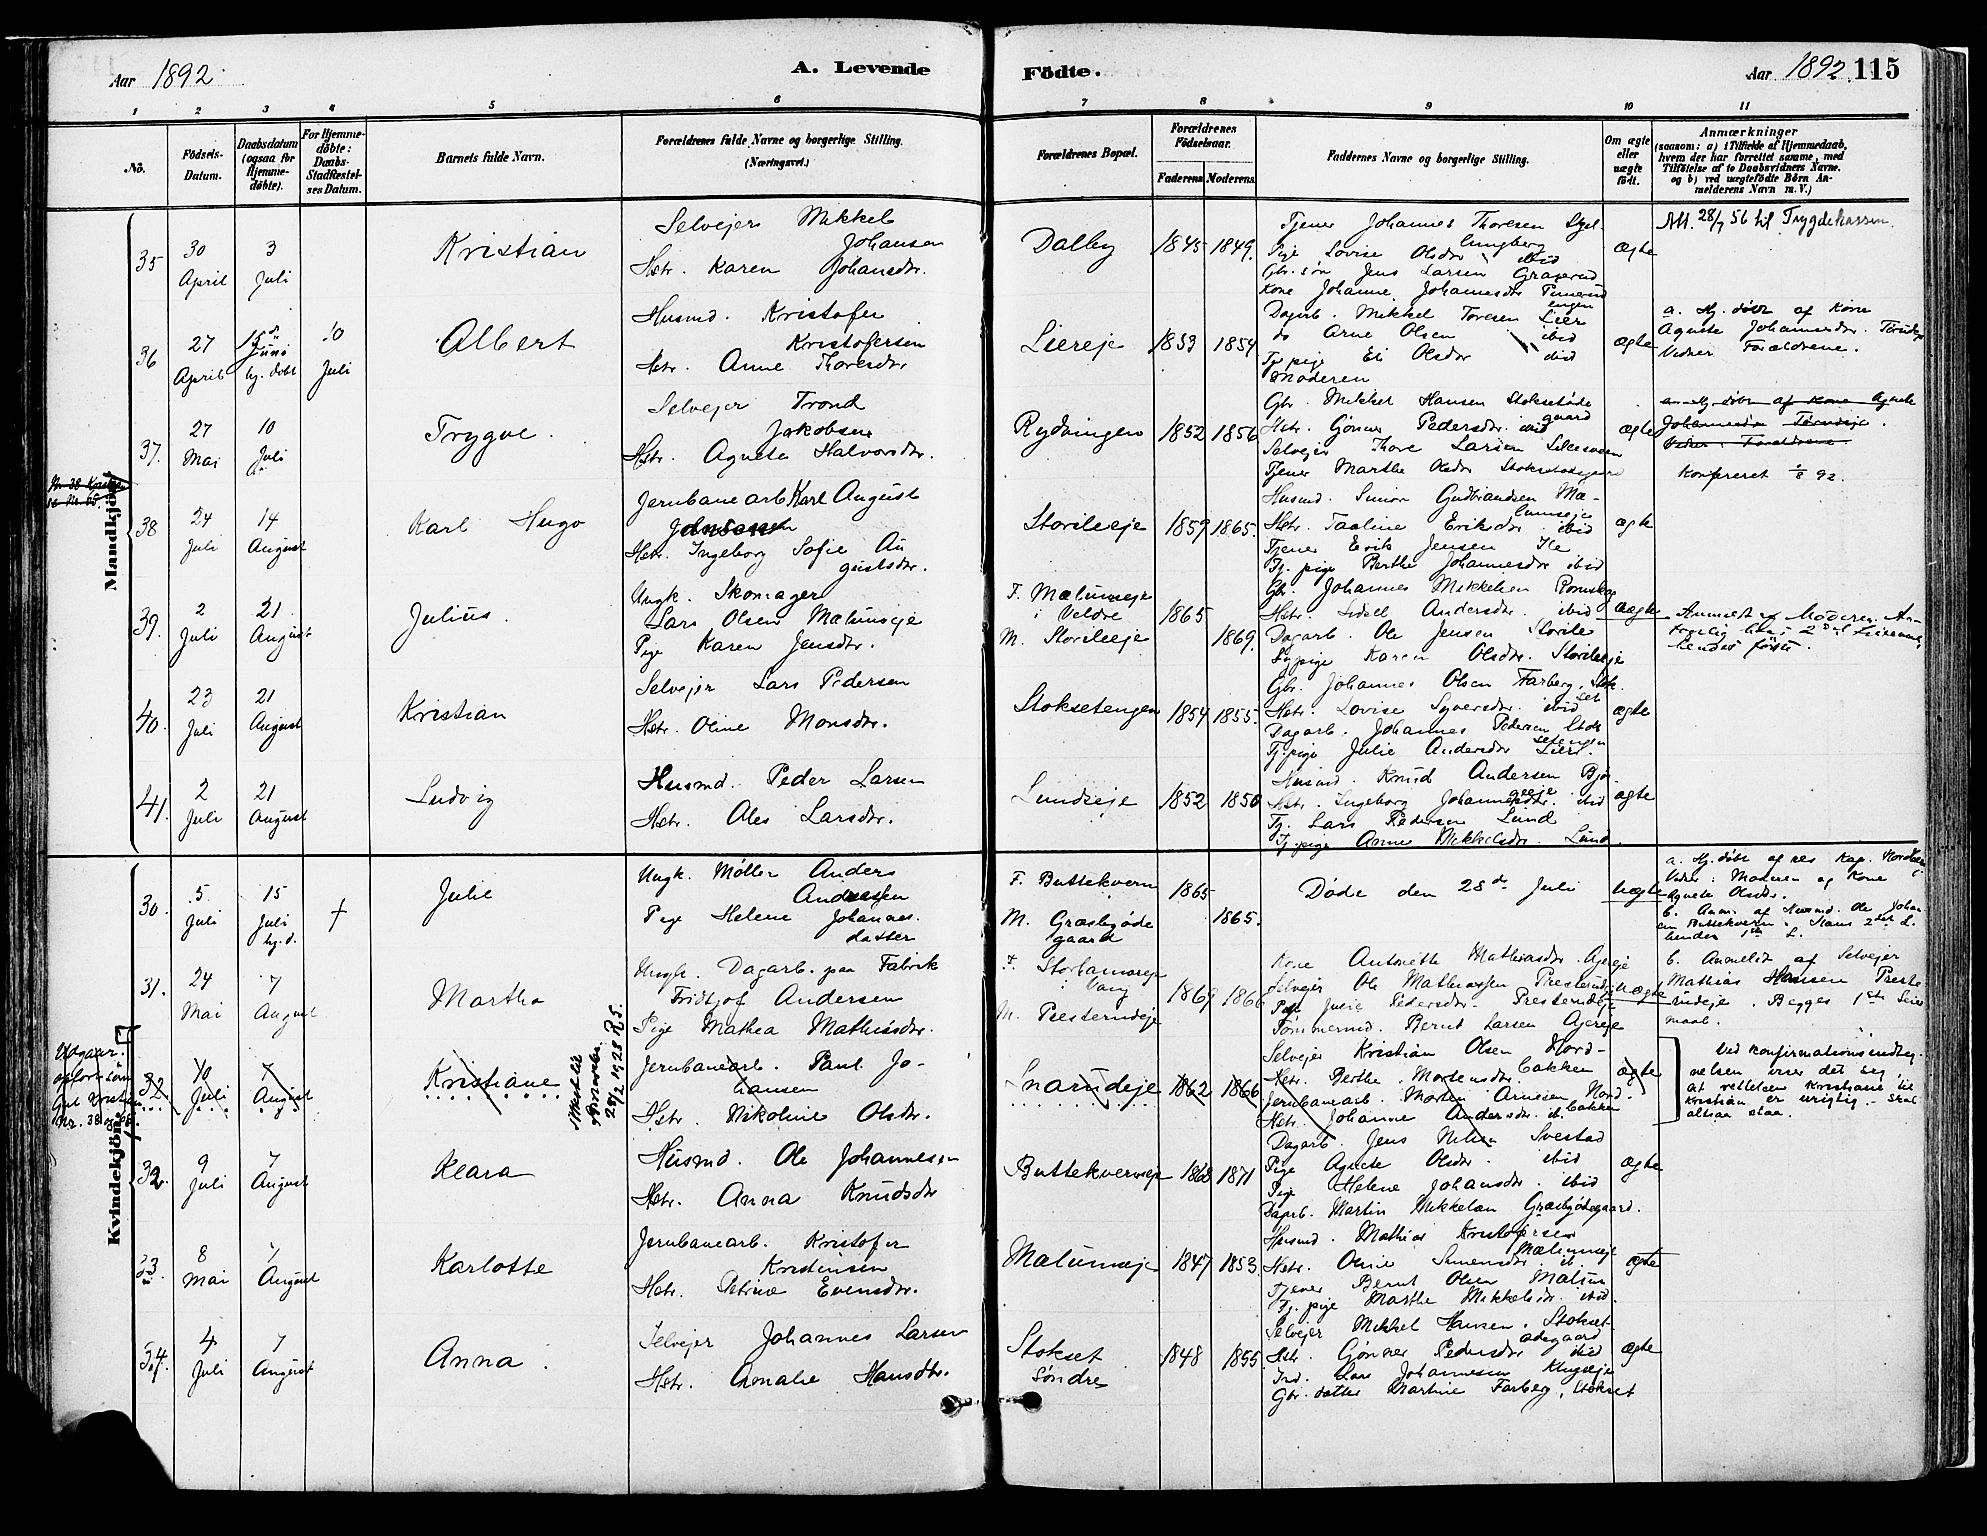 Aar 1892.
A. Levende
Fødte.
Aar 1892. 115
1 2 3 4 5 6 7 8 9 10 11
No.
Fødsels-Datum.
Daabsdatum (ogsaa for Hjemme-døbte).
For Hjemme-døbte: Daabs-Stadfæstel-ses Datum.
Barnets fulde Navn.
Forældrenes fulde Navne og borgerlige Stilling. (Næringsvei.)
Forældrenes Bopæl.
Forældrenes Fødselsaar.
Faderens. Moderens.
Faddernes Navne og borgerlige Stilling.
Om ægte eller uægte født.
Anmærkninger
(saasom: a) i Tilfælde af Hjemmedaab,
hvem der har forrettet samme, med
Tilføielse af to Daabsvidners Navne.
og b) ved uægtefødte Børn An-
melderens Navn m. V.)
Mandkjøn
35 30 April 3 Juli
Kristian
Selveier Mikkel
Johansen
Hstr. Karen Johansdr.
Dalby 1845 1849.
Tjener Johannes Thoresen
Pige Lovise Olsdr ibid
Gbr. søn Jens Larsen Graserud
Kone Johanne Johannesdr
ægte
Att. 28/7 56 til Trygdekassen.
36 27 April 15de Juni hj. døbt 10 Juli
Albert
Husmd. Kristofer
Kristofersen
Hstr. Anne Thoresdr
Liereje 1853 1854
Dagarb. Mikkel Toresen Lier
Arne Olsen ibid
Tj. pige Eli Olsdr ibid
Moderen
ægte
a. Hj. døbt af Kone
Agnete Johannesdr.
Vidner Forældrene.
37. 27 Mai 10 Juli
Trygve.
Selvejer Trond
Jakobsen
Hstr. Agneta Halvorsdr.
Rydningen 1852 1856
Gbr. Mikkel Hansen Stoksetøde
gaard
Hstr. Gønner Pedersdr. ibid
Selvejer Thore Larsen
Tjener Marthe Olsdr
ægte
a. Hj. døbt af Kone Agnete
Johannesdr
Vidner: Forældrene.
Konfereret 92.
38 24 Juli 14 August
Karl Hugo
Jernbanearb Karl August
Johansen
Hstr. Ingeborg Sofie Au
gustsdr.
Storileeje 1859 1865.
Husmd. Simon Gudbrandsen Mæ-
lumseje
Hstr. Taaline Eriksdr. ibid
Tjener Erik Jensen Ile
Tj. pige Berthe Johannesdr ibid
ægte
39. 2 Juli 21. August
Julius.
Ungk. Skomager
Lars Olsen Mælumseje
Pige Karen Jensdr.
F. Mælumseje
i Veldre
M. Storileeje
1865
1869.
Gbr. Johannes Mikkelsen
Hstr. Sidsel Andersdr. ibid
Dagarb. Ole Jensen Storile
Sypige Karen Olsdr. Storileeje
uægte
Anmeldt af Moderen.
hendes første.
40. 23 Juli 21 August
Kristian
Selvejer Lars Pedersen
Hstr. Oline Monsdr.
Stoksetengen 1854 1855.
Gbr. Johannes Olsen Farberg, Stok
set
Hstr. Lovise Syversdr. ibid
Dagarb. Johannes Pedersen Stok
setengen
Tj. pige Julie Andersdr Lier.
ægte
41. 2 Juli 21 August
Ludvig
Husmd. Peder Larsen
Hstr. Oles Larsdr.
Lundseje 1852 1850
Husmd. Knud Andersen
Hstr. Ingeborg Johannesdr. ibid
Tj. Lars Pedersen Lund
Tj. pige Anne Mikkelsdr. Lund.
ægte
Kvindekjøn
30. 5 Juli 15 Juli hj. d. †
Julie
Ungk. Møller Anders
Andersen
Pige Helene Johannes
datter
F. Buttekvern
M. Græsbyøde
gaard
1865
1865.
Døde den 28de Juli
uægte
a. Hj. døbt af res. Kap.
Vidner: Moderen og Kone
Agnete Olsdr.
b. Anm. af Husmd. Ole Johan
sen Buttekvern. Hans 2det L.
hendes 1ste L.
31. 24 Mai 7 August
Martha
Ungk. Dagarb. paa Fabrik
Fridtjof Andersen
Pige Mathea Mathisdr.
F. Storhamareje
i Vang
M. Presterudeje
1869 1866
Kone Antonette Mathiasdr.
Selvejer Ole Mathiassen Presterudeje
Pige Julie Pedersdr. Presterudeje
Tømmermd. Bernt Larsen
uægte
b. Anmeldt af Selvejer
Mathias Hansen Preste
rudeje. Begges 1ste Leier
maal.
Udgaar.
opført som
Gut Kristian
Nr. 38
32 10 Juli 7 August
Kristiane
Attest til
28/2 1928 R.S.
Jernbanearb. Paul Jo-
hansen
Hstr. Nikoline Olsdr.
Snarudeje 1862 1866
Selvejer Kristian Olsen Nord-
bakken
Hstr. Berthe Mortensdr.
Jernbanearb. Morten Arnesen Nord-
bakken
Hstr. Johanne Andersdr. ib.
ægte
Ved Konfirmationsindteg-
nelsen viser det sig,
at rettelsen Kristiane til
Kristian er urigtig. - Skal
altsaa staa.
32. 9 Juli 7 August
Klara
Husmd. Ole Johannesen
Hstr. Anna Knudsdr
Buttekverneje 1868 1871
Dagarb. Jens Nilsen Svestad
Pige Agnete Olsdr. ibid
Pige Helene Johansdr. ibid
Dagarb. Martin Mikkelsen Græsbyødegaard.
ægte
33. 8 Mai 7 August
Karlotte
Jernbanearb. Kristofer
Kristensen
Hstr. Petrine Evensdr.
Mælumseje 1847 1853.
Husmd. Mathias Kristofersen
Mælumseje
Hstr. Oline Simensdr. ib.
Tjener Bernt Olsen Mælum
Tj. pige Marthe Mikkelsdr. ibid.
ægte
34. 4 Juli 7 August
Anna.
Selvejer Johannes Larsen
Hstr. Amalie Hansdtr.
Stokset
Søndre
1848 1855
Selvejer Mikkel Hansen, Stokset
ødegaard
Hstr. Gønner Pedersdr ibid
Ind. Lars Johannesen
Gbr. datter Martine Farberg, Stokset
ægte